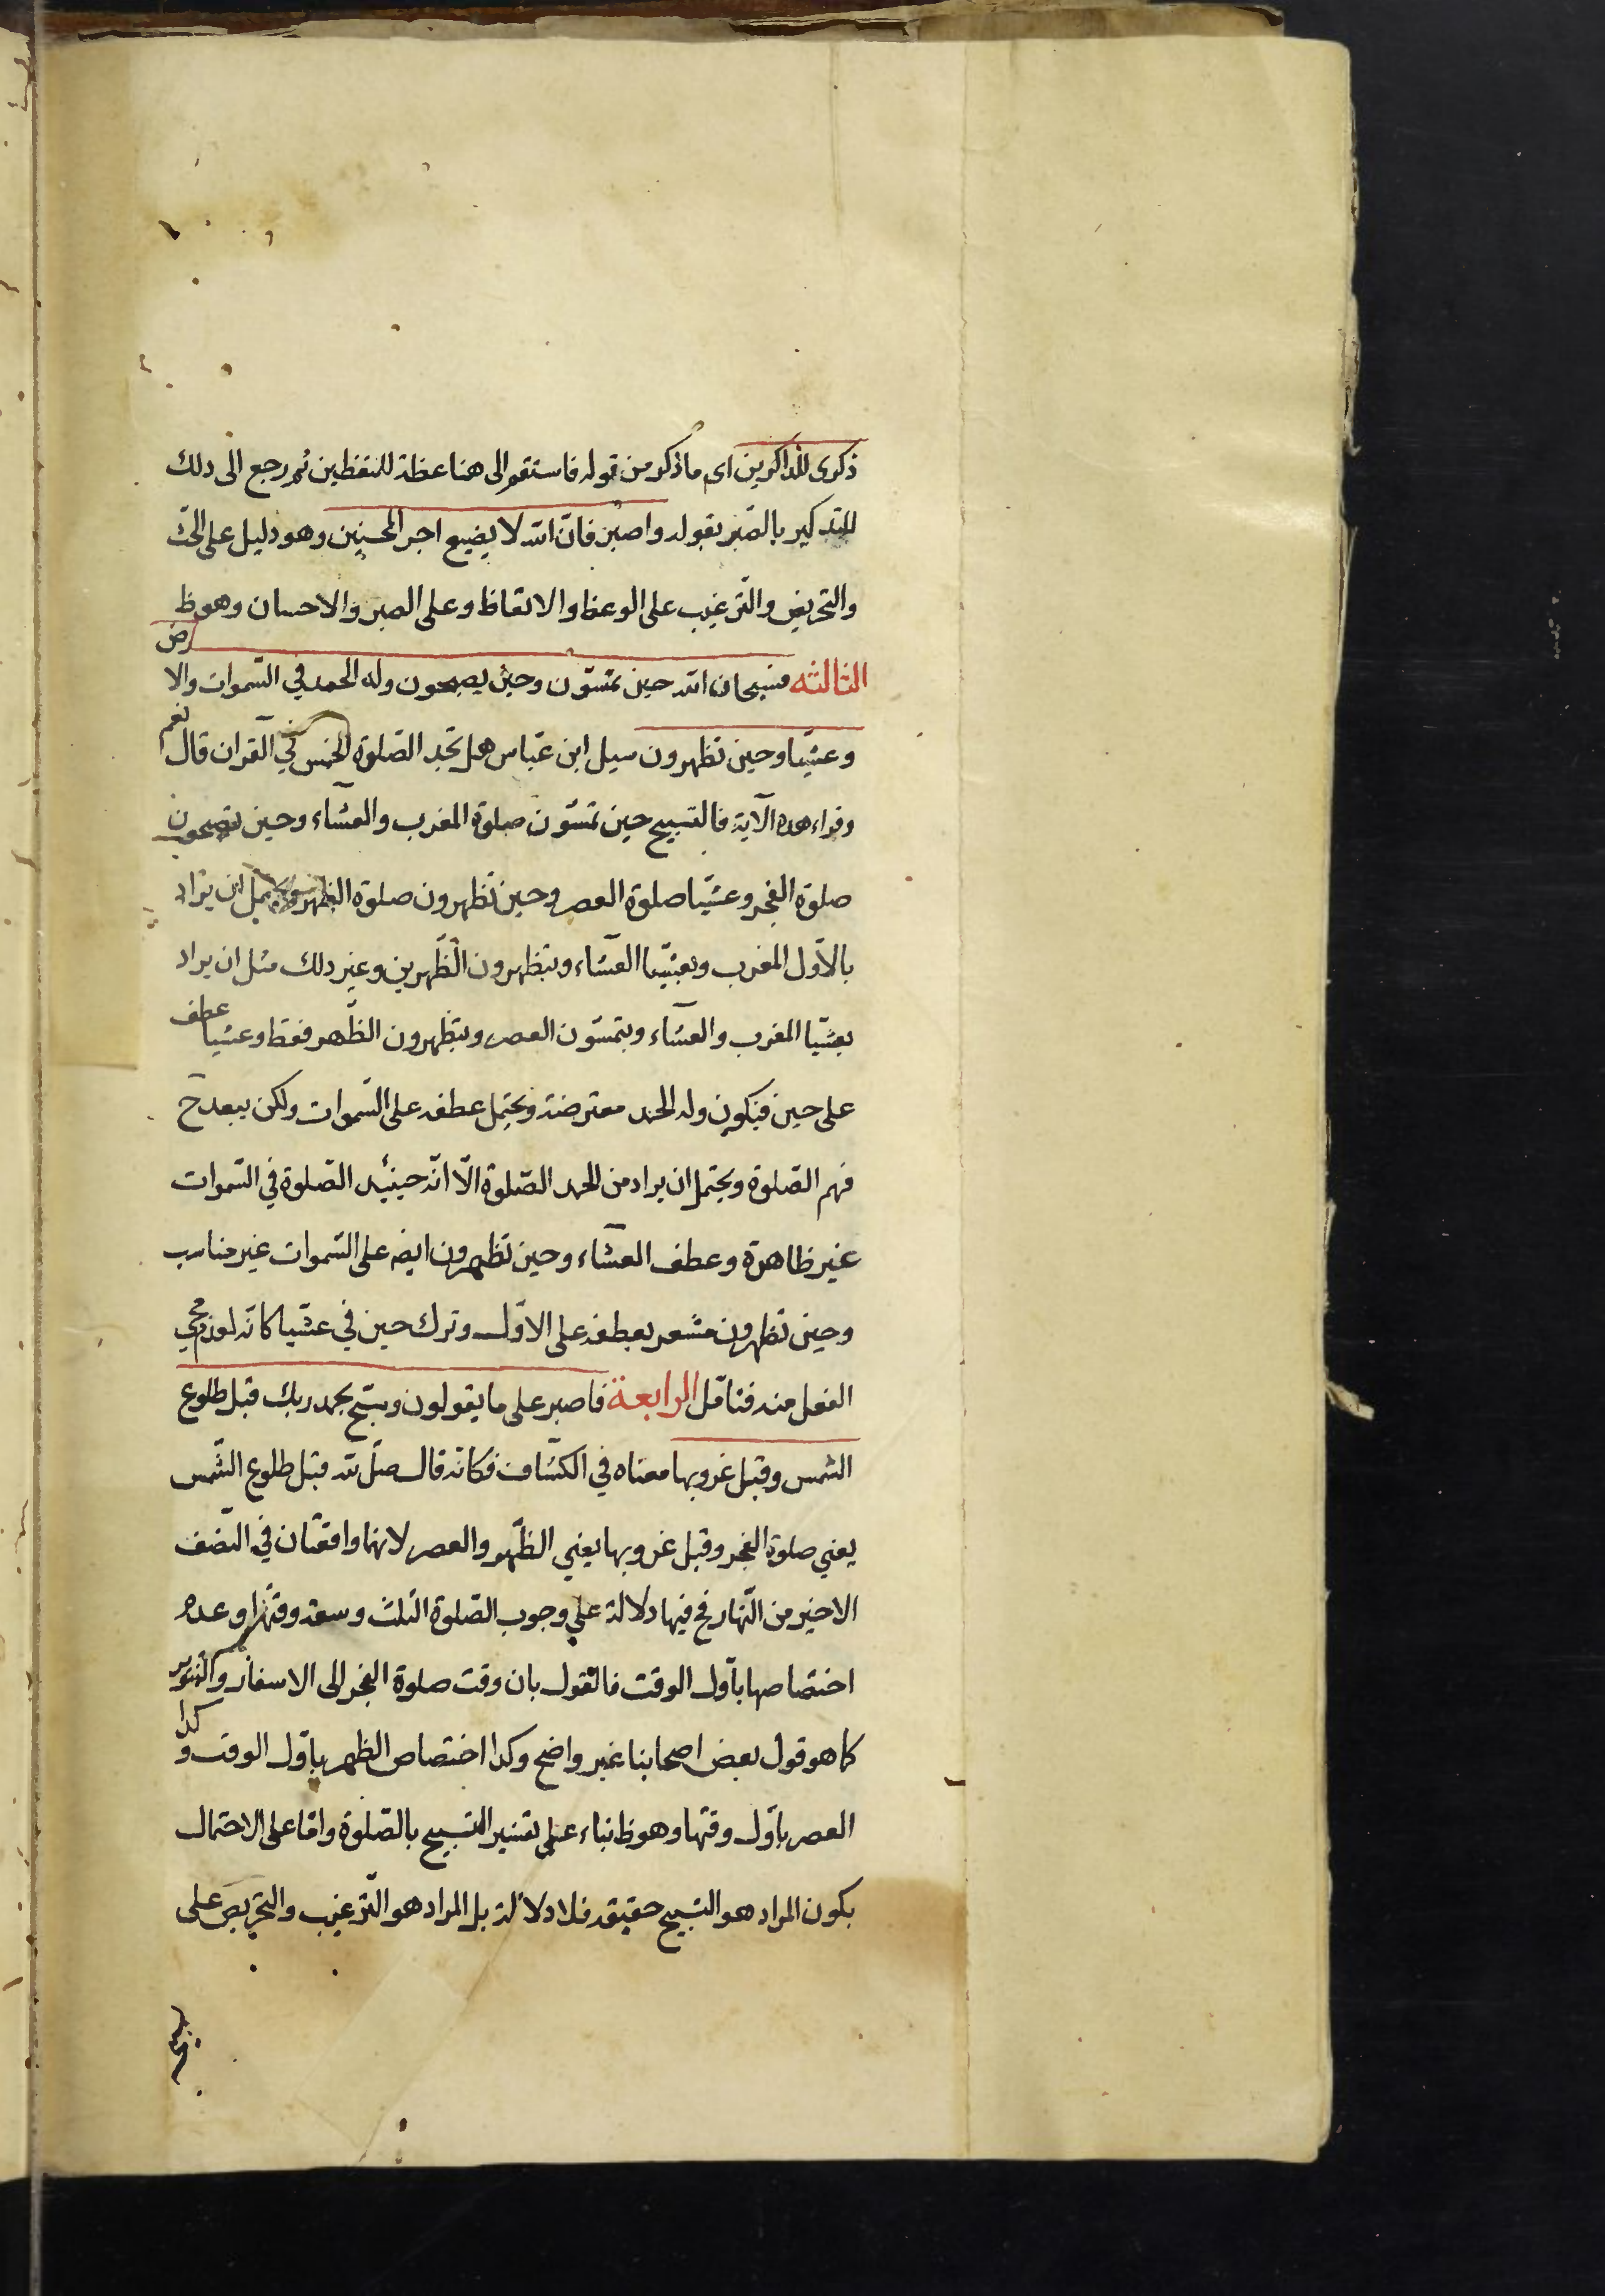 ذكرى للذاكرين اى ما ذكر من قوله فاستقم الى هنا عظة للمتعظين ثم رجع الى ذلك
للتذكير بالصّبر بقوله واصبر فانّ الله لا يضيع اجر المحسنين وهو دليل على الحثّ
والتحريض والتّرغيب على الوعظ والاتعاظ وعلى الصبر والاحسان وهو ظ
الثالثه فسبحان الله حين تمسّون وحين يصبحون وله الحمد في السّموات والارض
وعشيّا وحين تظهرون سيل ابن عبّاس هل تجد الصّلوة الخمس في القران قال نعم
وقراء هذه الآية فالتسبيح حين تمسّون صلوة المغرب والعشآء وحين تصبحون
صلوة الفجر وعشيّا صلوة العصر وحين تظهرون صلوة الظهر ويحتمل ان يراد
بالاوّل المغرب وبعشيّا العشآء وبتظهرون الظّهرين وغير ذلك مثل ان يراد
بعشيّا المغرب والعشآء وبتمسّون العصر وبتظهرون الظّهر فقط وعشيا عطف
على حين فيكون وله الحمد معترضة ويحتمل عطفه على السّموات ولكن يبعد ح
فهم الصّلوة ويحتمل ان يراد من الحمد الصّلوة الّا انّه حينئذ الصّلوة في السّموات
غير ظاهرة وعطف العشآء وحين تظهرون ايضه على السّموات غير مناسب
وحين تظهرون مشعر بعطفه على الاوّل وترك حين في عشيّا كانّه لعدم مجي
الفعل منه فتامّل الرابعة فاصبر على ما يقولون وسبّح بحمد ربك قبل طلوع
الشمس وقبل غروبها معناه في الكشّاف فكانّه قال صلّ لله قبل طلوع الشّمس
يعني صلوة الفجر وقبل غروبها يعني الظّهر والعصر لانهما واقعتان في النّصف
الاخير من النّهار فح فيها دلالة على وجوب الصّلوة الثلث وسعة وقتها وعدم
اختصاصها باوّل الوقت فالقول بان وقت صلوة الفجر الى الاسفار والتنوير
كما هو قول بعض اصحابنا غير واضح وكذا اختصاص الظهر باوّل الوقت وكذا
العصر باوّل وقتها وهو ظ بناء على تفسير التسبيح بالصّلوة وامّا على الاحتمال
بكون المراد هو التسبيح حقيقة فلا دلالة بل المراد هو التّرغيب والتحريص على